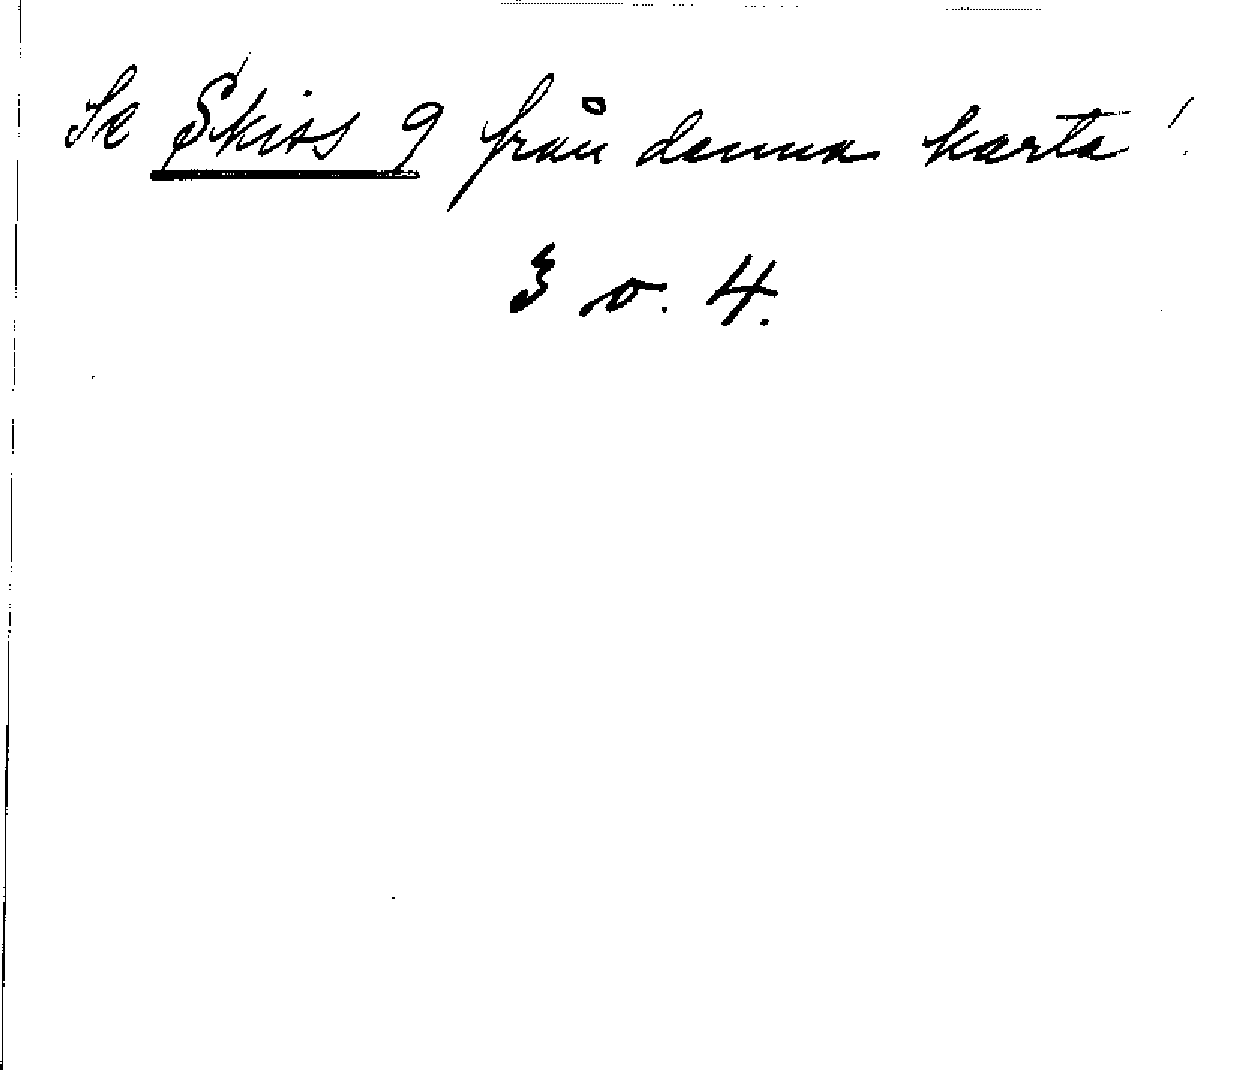 Se Skiss 9 från denna karta!
3 o. 4.